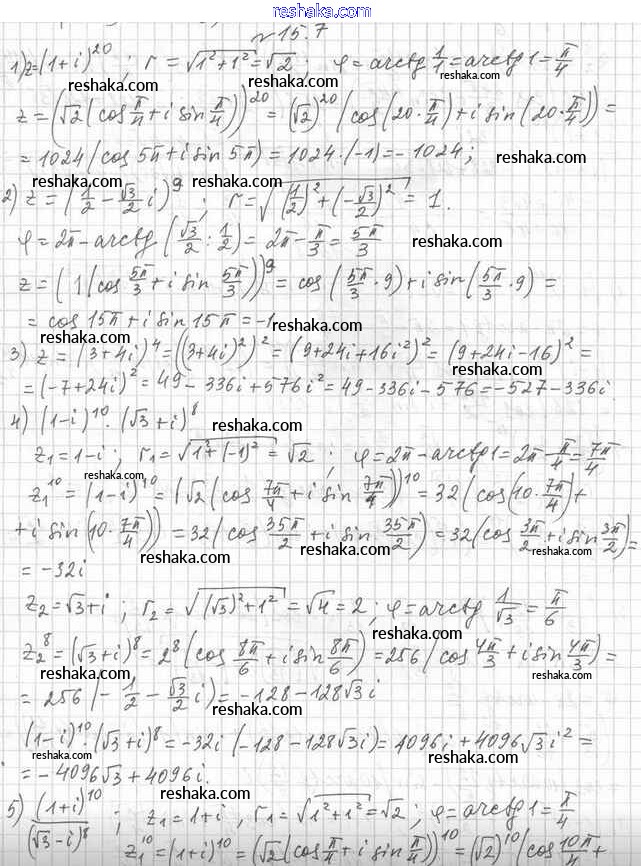 reshaka.com
№15.7
1) z=(1+i)^20 ; r=√(1²+1²)=√2 ; φ=arctg 1/1=arctg 1=π/4
reshaka.com reshaka.com
z=(√2(cos π/4+i sin π/4))^20=(√2)^20(cos(20·π/4)+i sin(20·π/4))=
reshaka.com
=1024(cos 5π+i sin 5π)=1024·(-1)=-1024;
reshaka.com reshaka.com reshaka.com
2) z=(1/2-√3/2 i)^9 ; r=√((1/2)²+(-√3/2)²)=1.
φ=2π-arctg(√3/2:1/2)=2π-π/3=5π/3
reshaka.com reshaka.com
z=(1(cos 5π/3+i sin 5π/3))^9=cos(5π/3·9)+i sin(5π/3·9)=
reshaka.com
=cos 15π+i sin 15π=-1
reshaka.com reshaka.com
3) z=(3+4i)^4=((3+4i)²)²=(9+24i+16i²)²=(9+24i-16)²=
reshaka.com
=(-7+24i)²=49-336i+576i²=49-336i-576=-527-336i.
reshaka.com
4) (1-i)^10·(√3+i)^8
reshaka.com
z₁=1-i ; r₁=√(1²+(-1)²)=√2 ; φ=2π-arctg1=2π-π/4=7π/4
reshaka.com reshaka.com
z₁^10=(1-i)^10=(√2(cos 7π/4+i sin 7π/4))^10=32(cos(10·7π/4)+
reshaka.com
+i sin(10·7π/4))=32(cos 35π/2+i sin 35π/2)=32(cos 3π/2+i sin 3π/2)=
reshaka.com reshaka.com
=-32i
reshaka.com
z₂=√3+i ; r₂=√((√3)²+1²)=√4=2 ; φ=arctg 1/√3=π/6
reshaka.com
z₂^8=(√3+i)^8=2^8(cos 8π/6+i sin 8π/6)=256(cos 4π/3+i sin 4π/3)=
reshaka.com reshaka.com
=256(-1/2-√3/2 i)=-128-128√3i
reshaka.com
(1-i)^10·(√3+i)^8=-32i(-128-128√3i)=4096i+4096√3i²=
reshaka.com reshaka.com
=-4096√3+4096i.
reshaka.com
5) (1+i)^10/(√3-i)^8 ; z₁=1+i , r₁=√(1²+1²)=√2 ; φ=arctg1=π/4
reshaka.com reshaka.com
z₁^10=(1+i)^10=(√2(cos π/4+i sin π/4))^10=(√2)^10(cos 10π/4+